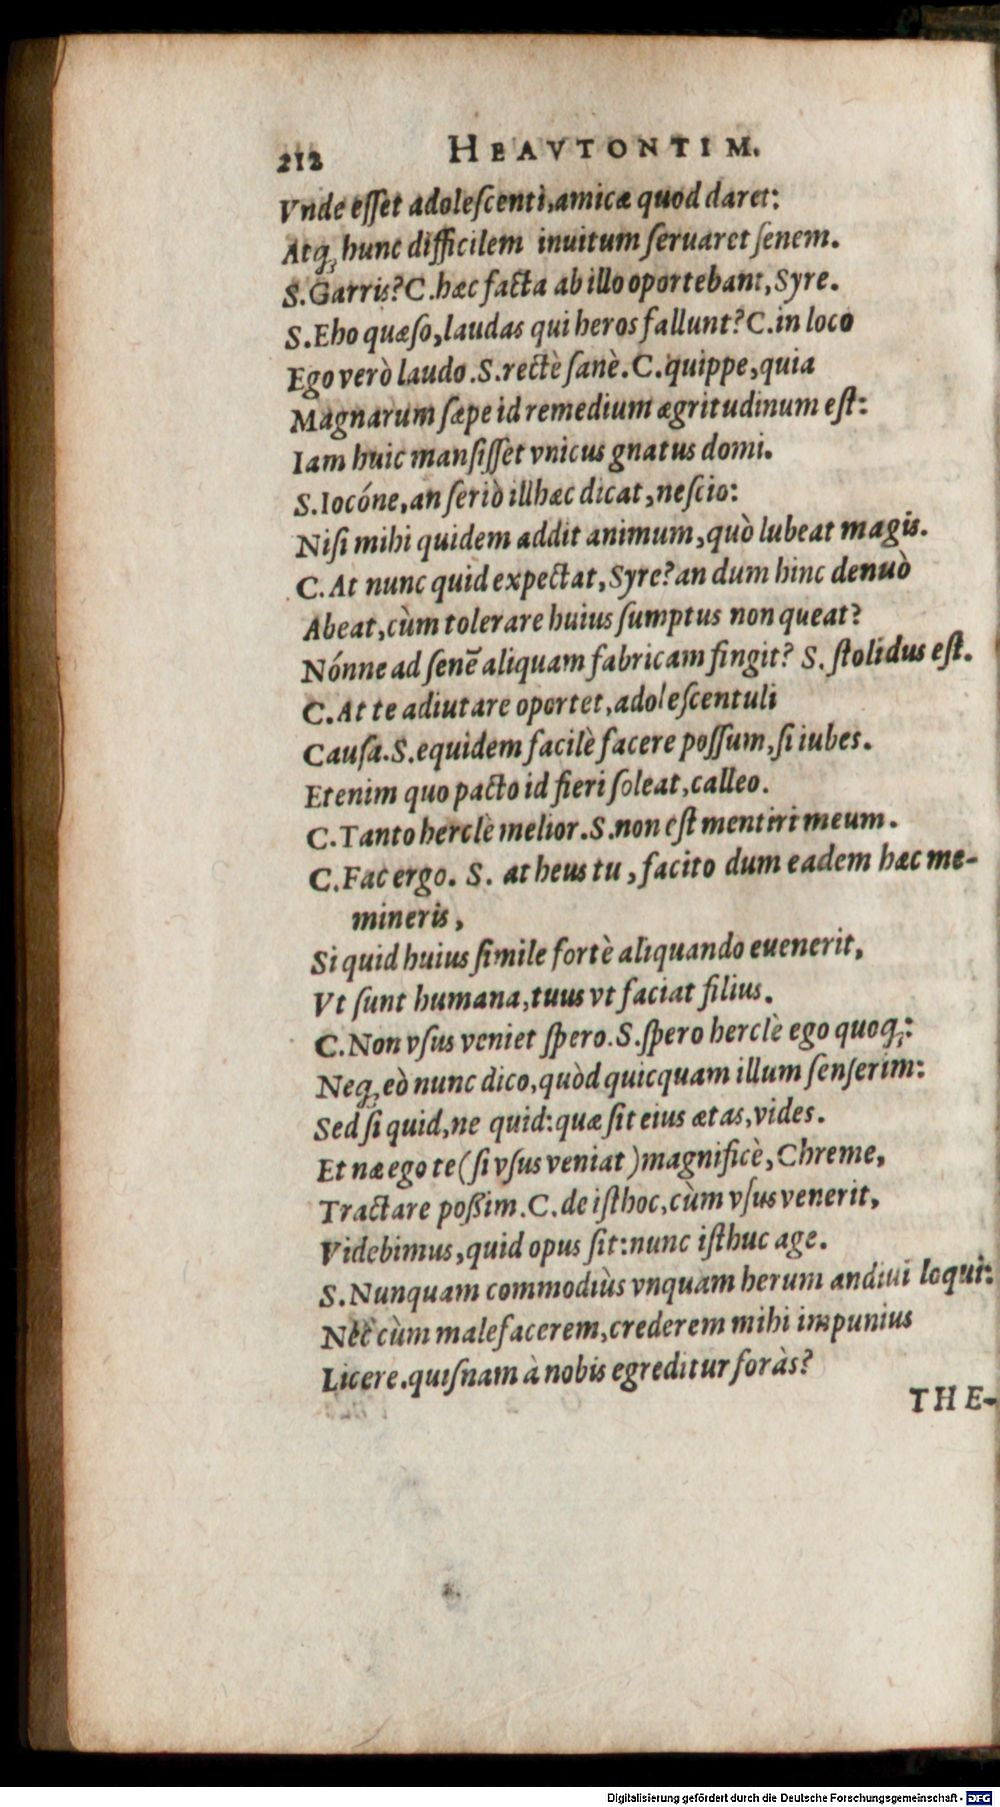 212 HEAVTONTIM.
Vnde eſſet adoleſcenti, amicæ quod daret:
Atq; hunc difficilem inuitum ſeruaret ſenem.
S. Garris? C. hæc facta ab illo oportebant, Syre.
S. Eho quæſo, laudas qui heros fallunt? C. in loco
Ego verò laudo. S. rectè ſanè. C. quippe, quia
Magnarum ſæpe id remedium ægritudinum eſt:
Iam huic manſiſſet vnicus gnatus domi.
S. Iocóne, an ſeriò illhæc dicat, neſcio:
Niſi mihi quidem addit animum, quò lubeat magis.
C. At nunc quid expectat, Syre? an dum hinc denuò
Abeat, cùm tolerare huius ſumptus non queat?
Nónne ad ſenē aliquam fabricam fingit? S. ſtolidus eſt.
C. At te adiutare oportet, adoleſcentuli
Cauſa. S. equidem facilè facere poſſum, ſi iubes.
Etenim quo pacto id fieri ſoleat, calleo.
C. Tanto herclè melior. S. non eſt mentiri meum.
C. Fac ergo. S. at heus tu, facito dum eadem hæc me-
mineris,
Si quid huius ſimile fortè aliquando euenerit,
Vt ſunt humana, tuus vt faciat filius.
C. Non vſus veniet ſpero. S. ſpero herclè ego quoq;:
Neq; eò nunc dico, quòd quicquam illum ſenſerim:
Sed ſi quid, ne quid: quæ ſit eius ætas, vides.
Et næ ego te (ſi vſus veniat) magnificè, Chreme,
Tractare poßim. C. de iſthoc, cùm vſus venerit,
Videbimus, quid opus ſit: nunc iſthuc age.
S. Nunquam commodiùs vnquam herum andiui loqui:
Nec cùm malefacerem, crederem mihi impunius
Licere. quiſnam à nobis egreditur foràs?
THE-
Digitalisierung gefördert durch die Deutsche Forschungsgemeinschaft - DFG